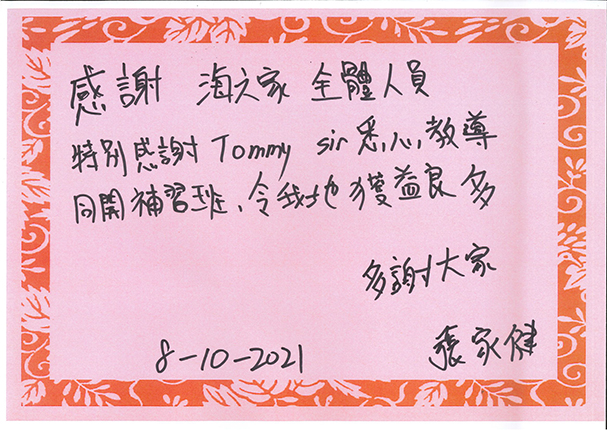 感謝 海之家 全體人員
特別感謝 Tommy sir 悉心教導
同開補習班、令我地獲益良多
多謝大家
張家健
8-10-2021